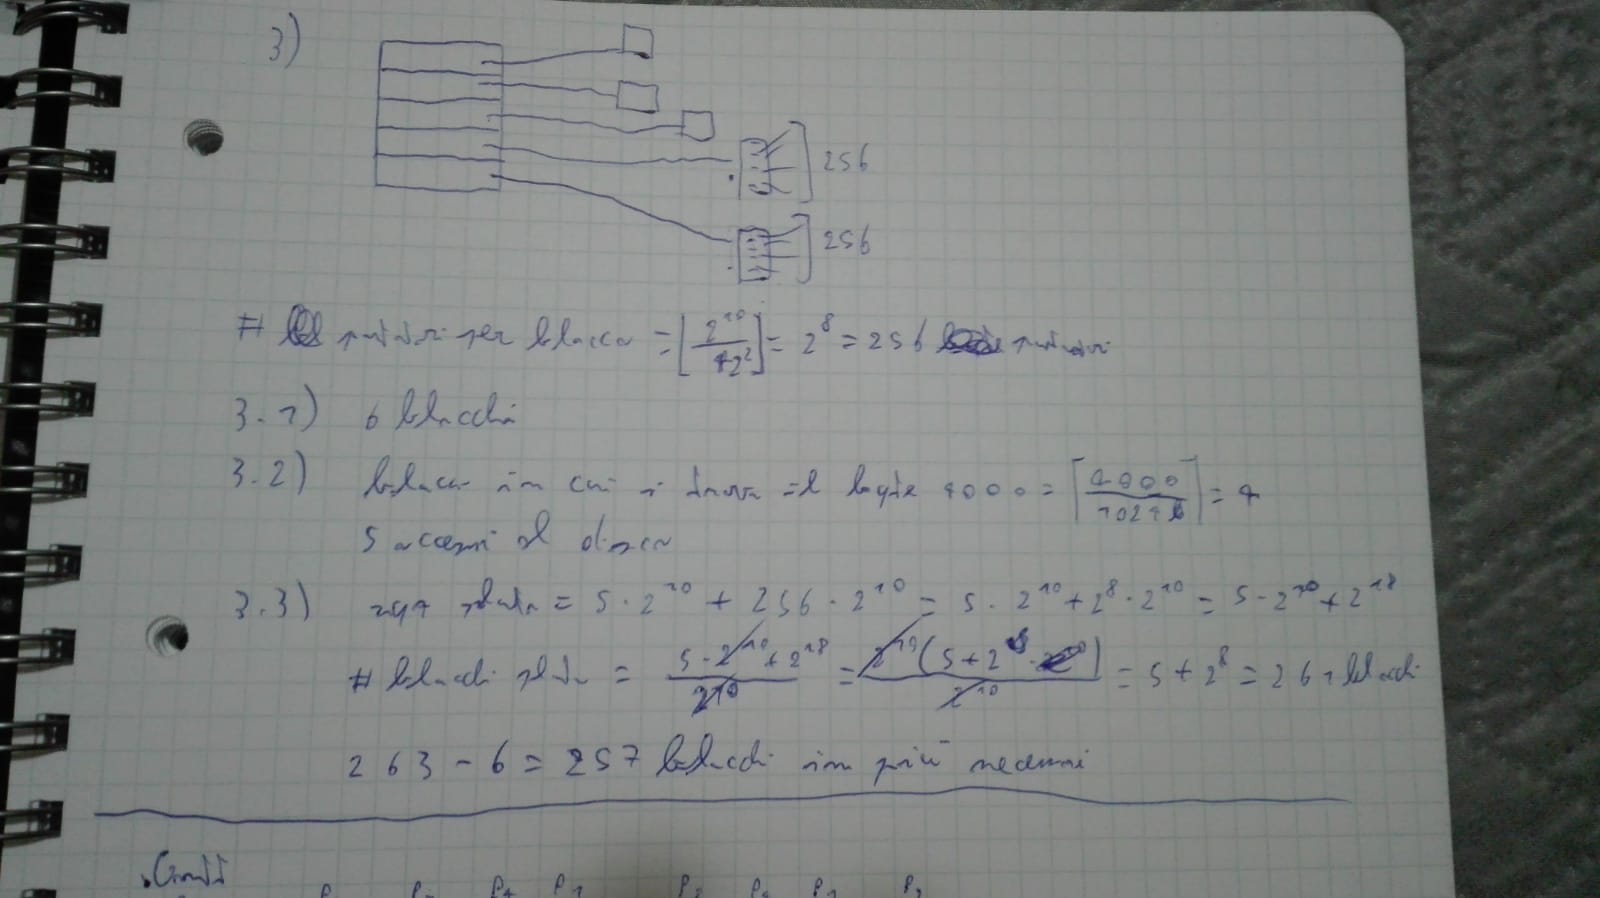 3)
256
256
# puntatori per blocco = ⌊2^10 / 42^2⌋ = 2^8 = 256 puntatori
3.1) 6 blocchi
3.2) blocco in cui si trova il byte 4000 = ⌈4000 / 1024⌉ = 4
5 accessi al disco
3.3) = 5 · 2^10 + 256 · 2^10 = 5 · 2^10 + 2^8 · 2^10 = 5 · 2^10 + 2^18
# blocchi = 5 · 2^10 + 2^18 / 2^10 = 2^10 (5 + 2^8) / 2^10 = 5 + 2^8 = 261 blocchi
263 - 6 = 257 blocchi in più necessari